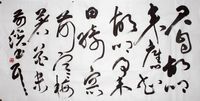 君自故鄉
来應知
故鄉事来
日綺窗
前寒梅
著花未